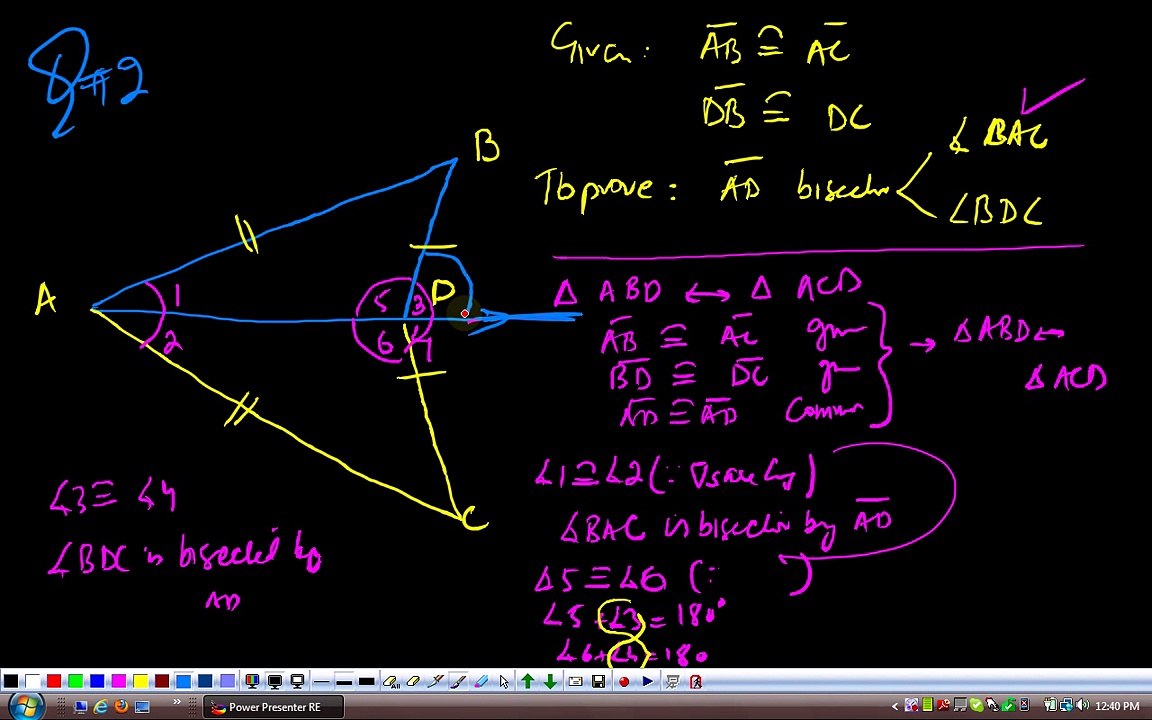 Q#2
Given: AB ≅ AC
DB ≅ DC
To prove: AD bisects
∡ BAC
∠BDC
A
B
C
D
1
2
5
3
6
4
Δ ABD ↔ Δ ACD
AB ≅ AC
BD ≅ DC
AD ≅ AD Common
→ ΔABD ↔
Δ ACD
∠1 ≅ ∠2 (∵
∡BAC is bisected by AD
∆5 ≅ ∠6 (: )
∠5 + ∠3 = 180°
∠6 + ∠4 = 180
∠3 ≅ ∠4
∠BDC is bisected by
AD
Power Presenter RE
12:40 PM